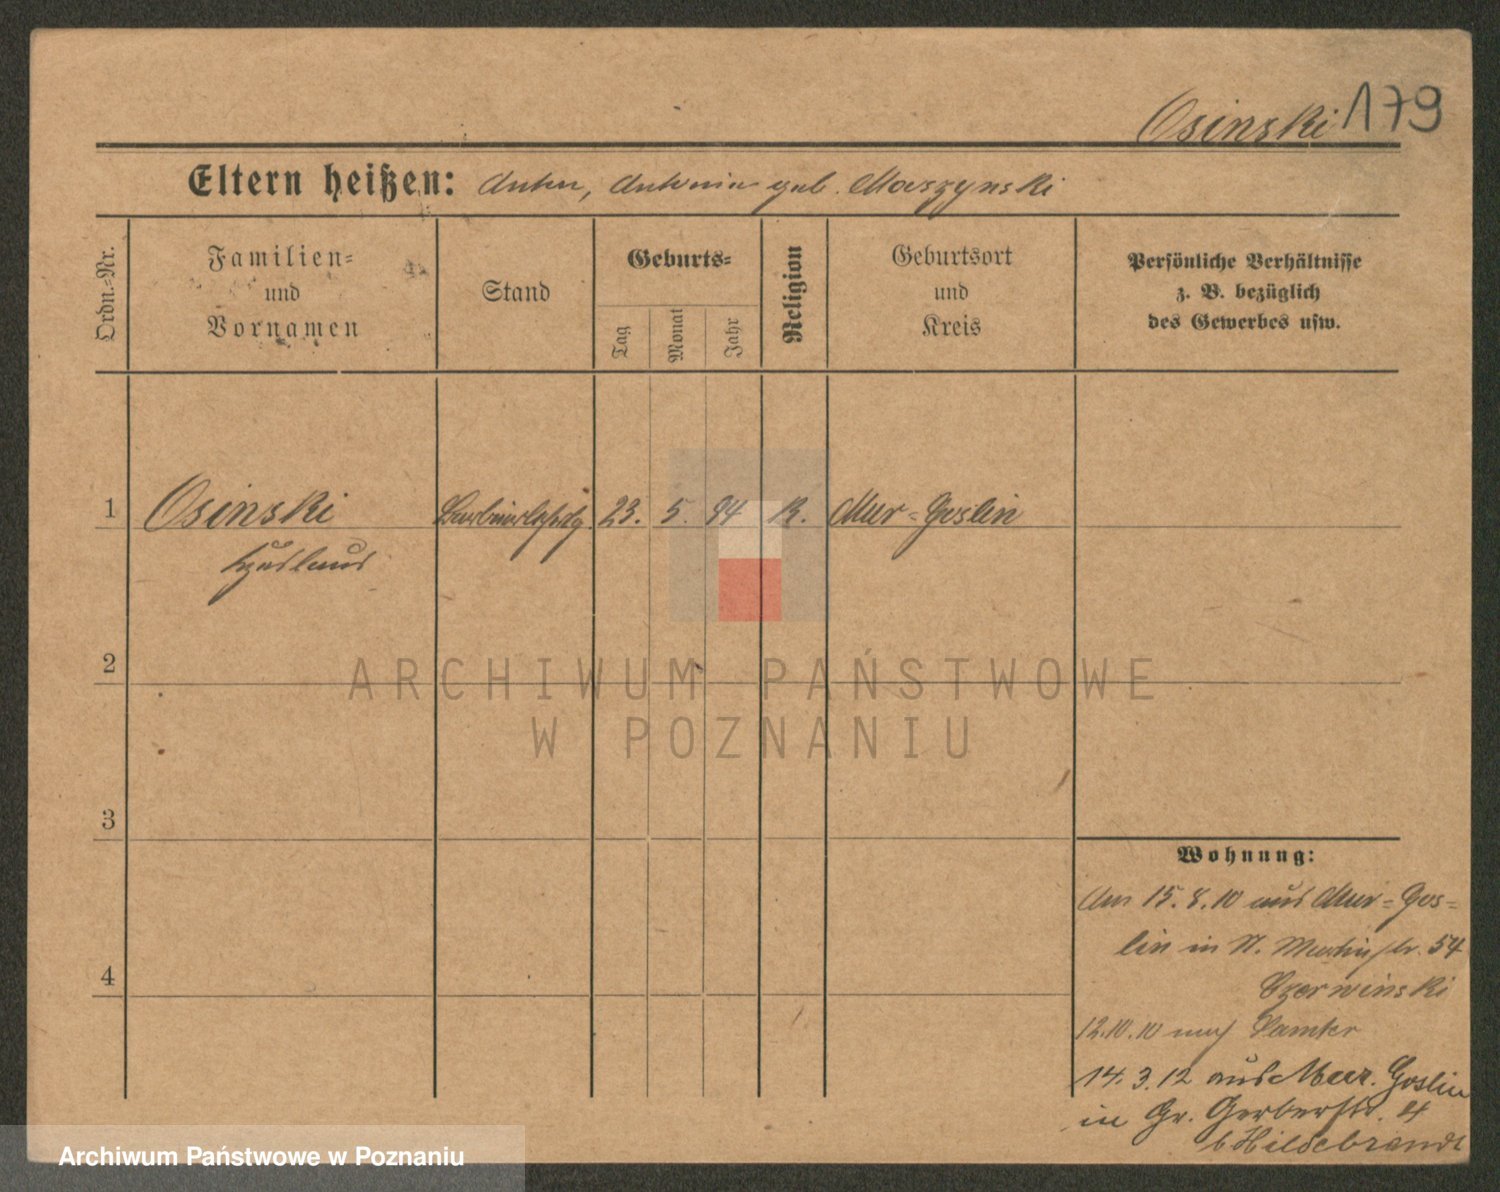 Osinski 179
Eltern heißen: Anton, Antonina geb. Maszynski
Ordn.-Nr.
Familien-
und
Vornamen
Stand
Geburts-
Tag
Monat
Jahr
Religion
Geburtsort
und
Kreis
Persönliche Verhältnisse
z. B. bezüglich
des Gewerbes usw.
1 Osinski Barbierlehrlg. 23. 5. 94 K. Mur-Goslin
2
3
4
Wohnung:
Am 15.8.10 aus Mur-Gos-
lin in St. Martinstr. 54
Czerwinski
12.10.10 nach Samter
14.3.12 aus Mur. Goslin
in Gr. Gerberstr. 4
b Hildebrandt
ARCHIWUM PAŃSTWOWE
W POZNANIU
Archiwum Państwowe w Poznaniu